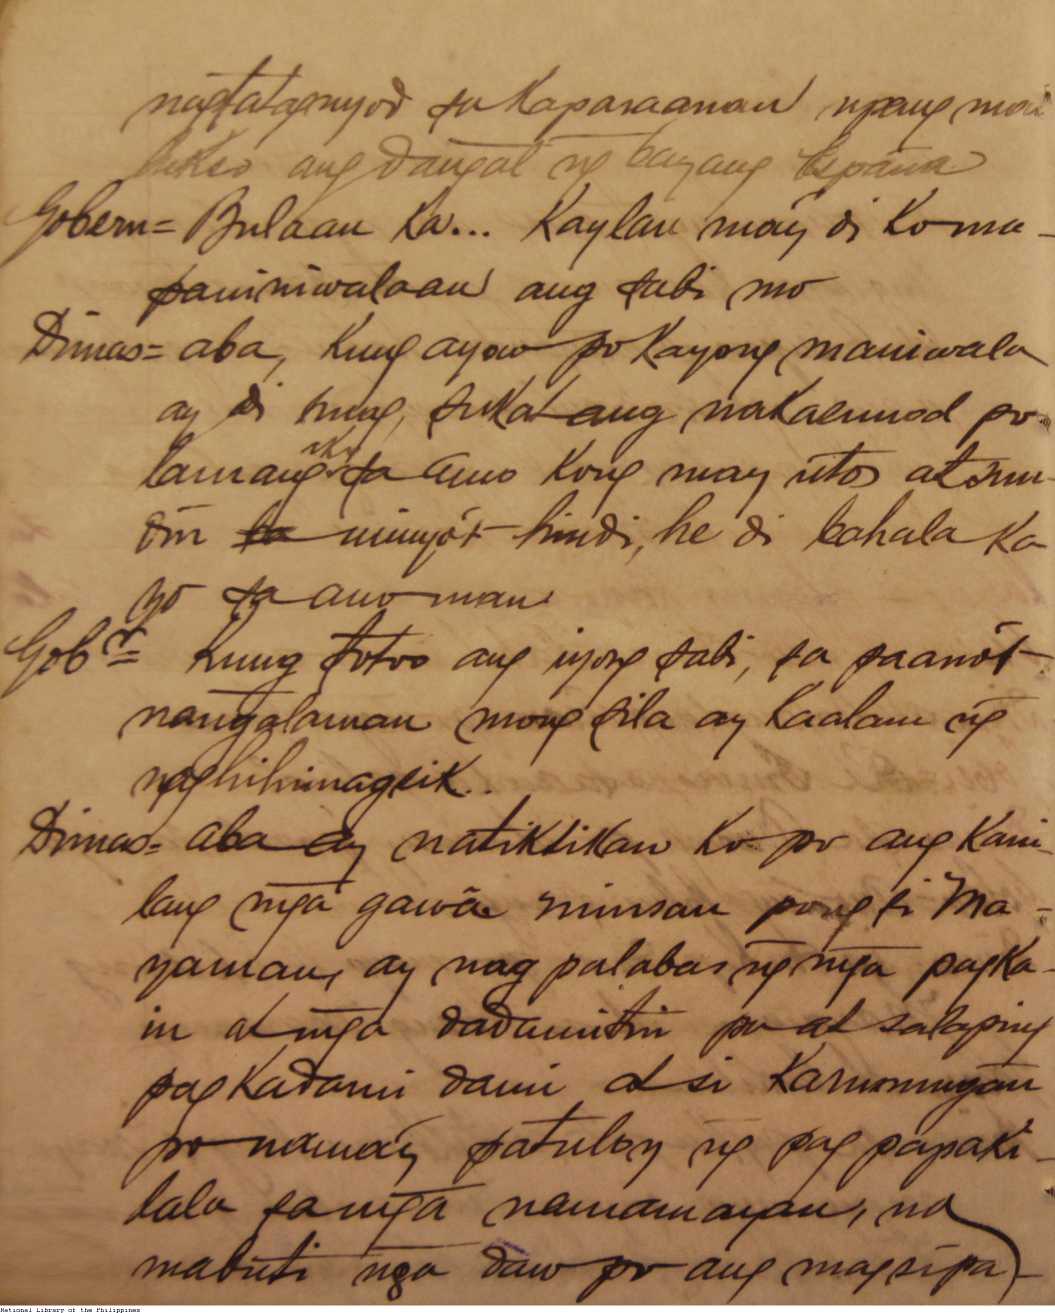 nagtatagnyod sa Kaparaanan upang mai
lukso ang dangal ng bayang España
Gobern= Bulaan Ka... Kaylan may di Ko ma-
paniniwalaan ang sabi mo
Dimas= aba, Kung ayaw po Kayong maniwala
ay di sukat ang nakasunod po
lamang ako sa amo Kong may utos at sun-
din ninyo't hindi, he di bahala Ka
yo sa ano man
Gobr= Kung totoo ang iyong sabi, sa paano't
nangalaman mong sila ay Kaalam ng
naghihimagsik..
Dimas= aba ay natiktikan Ko po ang Kani-
lang mga gawa minsan pong si Ma-
yaman, ay nag palabas ng mga pagka-
in at mga dadamitin po at salaping
pagkadami dami at si Karunungan
po nama'y patuloy ng pag papaki-
lala sa mga namamayan, na
mabuti nga daw po ang magsipa-
National Library of the Philippines